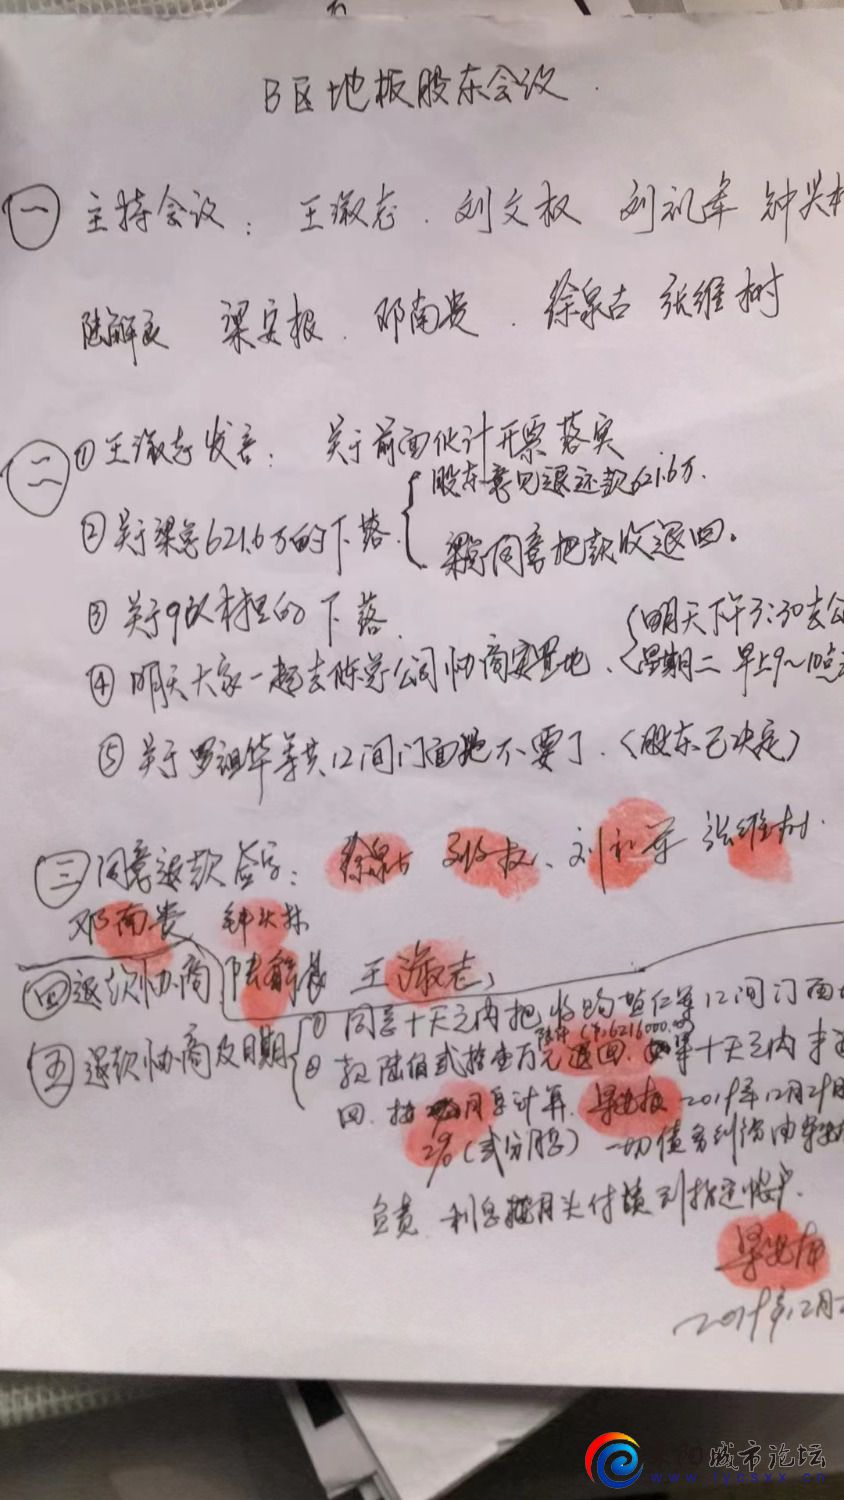 B区地板股东会议.
㊀ 主持会议: 王淑志. 刘文权 刘礼军 钟
陆解良 梁安根. 邓南贵. 徐泉古 张维树
㊁ ①王淑志发言: 关于前面伙计开票落实
②关于梁总621.6万的下落. 股东意见退还款621.6万.
梁总同意把款收退回。
③关于9以 的下落.
④明天大家一起去陈总公司协商实置地. 明天下午3:30去公
星期二早上9~10点
⑤关于罗祖华等共12间门面地不要了.(股东已决定)
㊂同意退款签字: 徐泉古 权、刘礼军 张维树.
邓南贵 钟
㊃退款协商 陆解良 王淑志,
㊄退款协商及日期 ①同意十天之内把收购 仁等12间门面
陆什(¥:6216000.00)
②款陆佰贰拾壹万元退回. 如果十天之内未退
回.按 月息计算. 梁安根 2019年12月29日
2%(贰分股息) 一切债务纠纷由梁安根
负责.利息按月头付续到指定帐户.
梁安根
2019年12月2
城市论坛